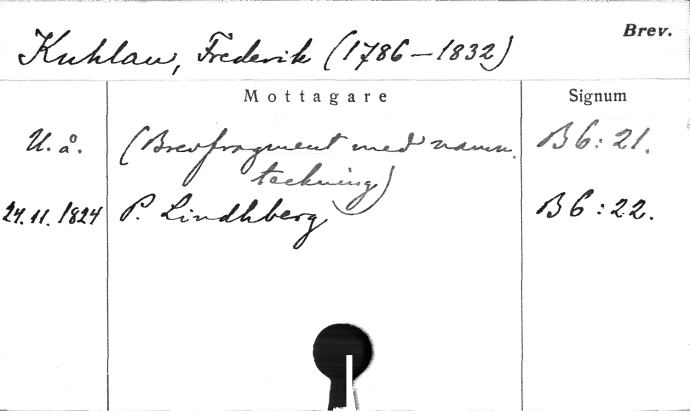 Brev.
Kuhlau, Frederik (1786-1832)
Mottagare Signum
U. å. (Brevfragment med namn- B 6:21.
teckning)
24.11.1824 P. Lindhberg B 6:22.